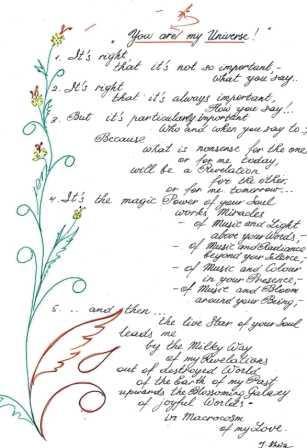 "You are my Universe!"
1. It's right,
that it's not so important, -
what you say..
2. It's right
that it's always important,
How you say!...
3. But it's particularly important
Who and when you say to;
Because
what is nonsense for the one
or for me today,
will be a Revelation
for the other,
or for me tomorrow...
4. It's the magic Power of your Soul
works Miracles
- of Music and Light
above your Words, -
- of Music and Radiance
beyond your Silence, -
- of Music and Colour
in your Presence, -
- of Music and Bloom
around your Being,
5. ... and then...
the live Star of your Soul
leads me
by the Milky Way
of my Revelations
out of destroyed World
of the Earth of my Past
upwards the Blossoming Galaxy
of joyful Worlds -
in Macrocosm
of my Love.